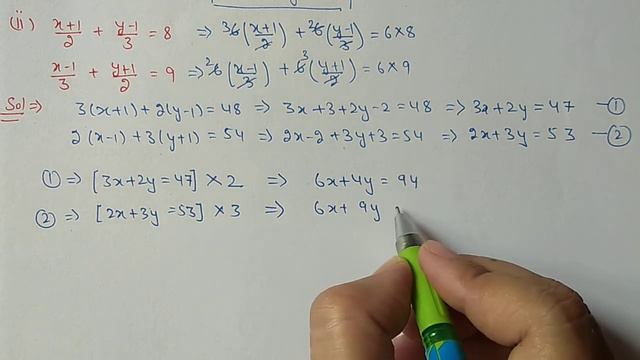 (ii) x+1/2 + y-1/3 = 8 ⇒ 36(x+1/2) + 26(y-1/3) = 6×8
x-1/3 + y+1/2 = 9 ⇒ 26(x-1/3) + 63(y+1/2) = 6×9
Sol ⇒ 3(x+1) + 2(y-1) = 48 ⇒ 3x+3+2y-2 = 48 ⇒ 3x+2y = 47 —①
2(x-1) + 3(y+1) = 54 ⇒ 2x-2+3y+3 = 54 ⇒ 2x+3y = 53 —②
① ⇒ [3x+2y = 47] × 2 ⇒ 6x+4y = 94
② ⇒ [2x+3y = 53] × 3 ⇒ 6x+ 9y